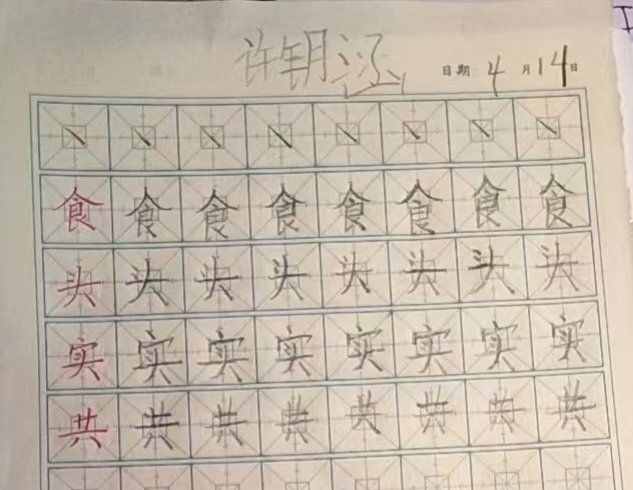 许钥涵
日期 4月14日
丶丶丶丶丶丶丶丶
食食食食食食食食
头头头头头头头头
实实实实实实实实
共共共共共共共共